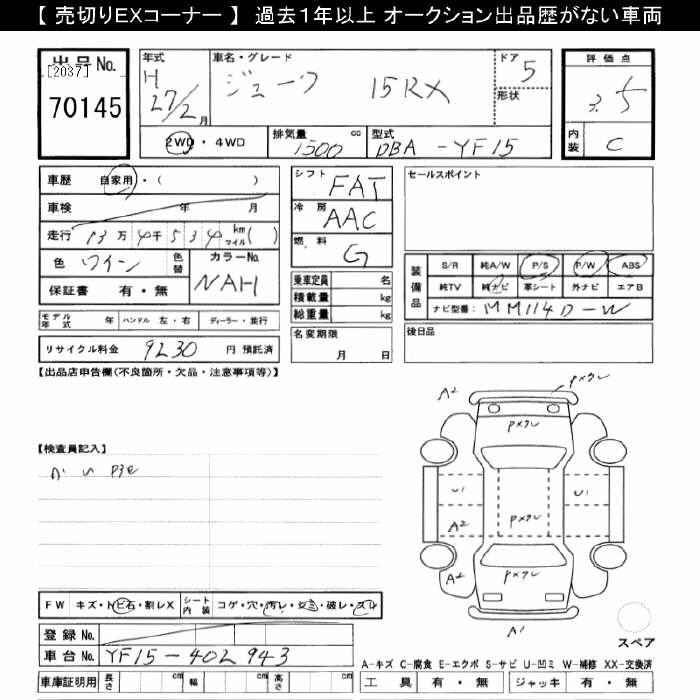 【 売切りEXコーナー 】 過去１年以上 オークション出品歴がない車両
出品No. 年式 車名・グレード ドア 評価点
[2037] H ジューク 15RX 5 3.5
70145 27/2月 形状
2WD・4WD 排気量 1500 cc 型式 DBA-YF15 内装 C
車歴 自家用・( ) シフト FAT セールスポイント
車検 年 月 冷房 AAC
走行 13万4千534 km マイル( ) 燃料 G
色 ワイン 色替 カラーNo. NAH
保証書 有・無
乗車定員 名
積載量 kg
総重量 kg
装備品 S/R 純A/W P/S P/W ABS
純TV 純ナビ 革シート 外ナビ エアB
ナビ型番: MM114D-W
モデル年式 年 ハンドル 左・右 ディーラー・並行
名変期限 月 日
後日品
リサイクル料金 9230 円 預託済
【出品店申告欄(不良箇所・欠品・注意事項等)】
【検査員記入】
A2
A2
A2
A1
U1
U1
FW キズ・トビ石・割レX シート内装 コゲ・穴・汚レ・シミ・破レ・スレ
登録No.
車台No. YF15-402943
スペア
A-キズ C-腐食 E-エクボ S-サビ U-凹ミ W-補修 XX-交換済
車庫証明用 長さ cm 幅 cm 高さ cm 工具 有・無 ジャッキ 有・無